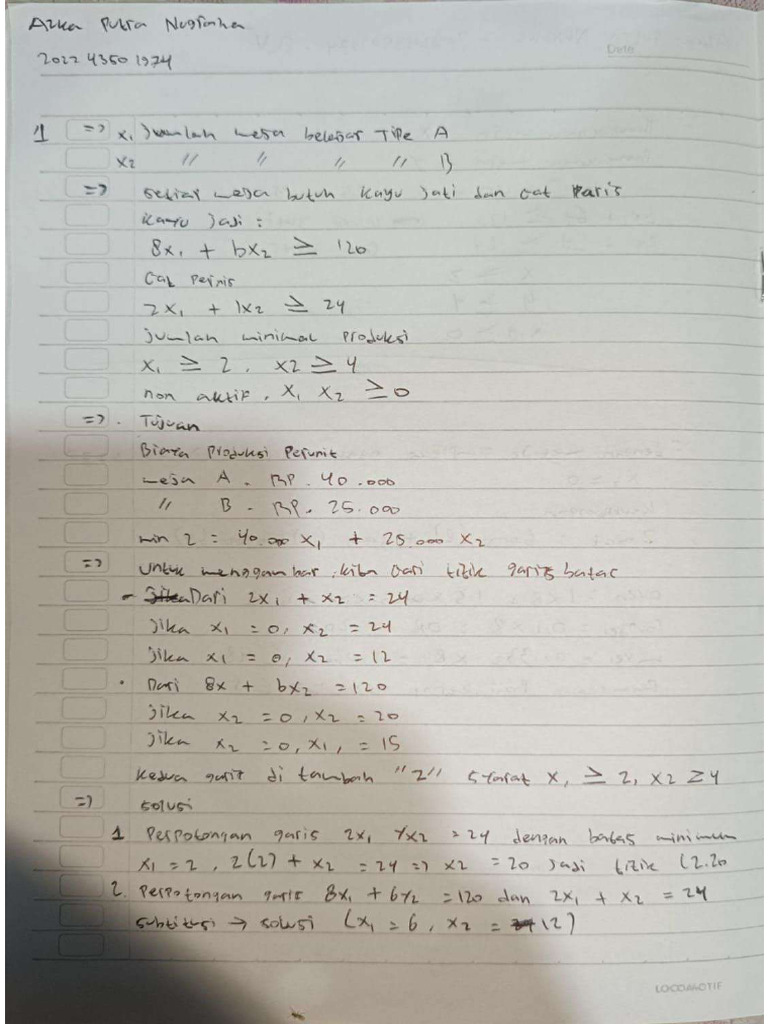 Azka Putra Nugraha
Date
2022 4350 1974
1 => x1 Jumlah meja belajar Tipe A
x2 " " " " B
=> setiap meja butuh kayu jati dan cat Paris
kayu jati :
8x1 + 6x2 ≥ 120
Cat Pernis
2x1 + 1x2 ≥ 24
jumlah minimal produksi
x1 ≥ 2 . x2 ≥ 4
non aktif . x1 x2 ≥ 0
=> . Tujuan
Biaya Produksi Perunit
meja A . RP . 40 .000
" B - RP. 25.000
min z = 40.000 x1 + 25.000 x2
=> untuk menggambar , kita cari titik garis batas
- Dari 2x1 + x2 = 24
Jika x1 = 0, x2 = 24
Jika x1 = 0, x2 = 12
. Dari 8x + 6x2 = 120
jika x2 = 0 , x2 = 20
jika x2 = 0, x1, = 15
Kedua garis di tambah "2" syarat x1 ≥ 2, x2 ≥ 4
=> solusi
1 Perpotongan garis 2x1 + x2 = 24 dengan batas minimum
x1 = 2 , 2(2) + x2 = 24 => x2 = 20 Jadi titik (2.20
2. Perpotongan garis 8x1 + 6x2 = 120 dan 2x1 + x2 = 24
subtitusi → solusi (x1 = 6 , x2 = 12)
LOCOMOTIF